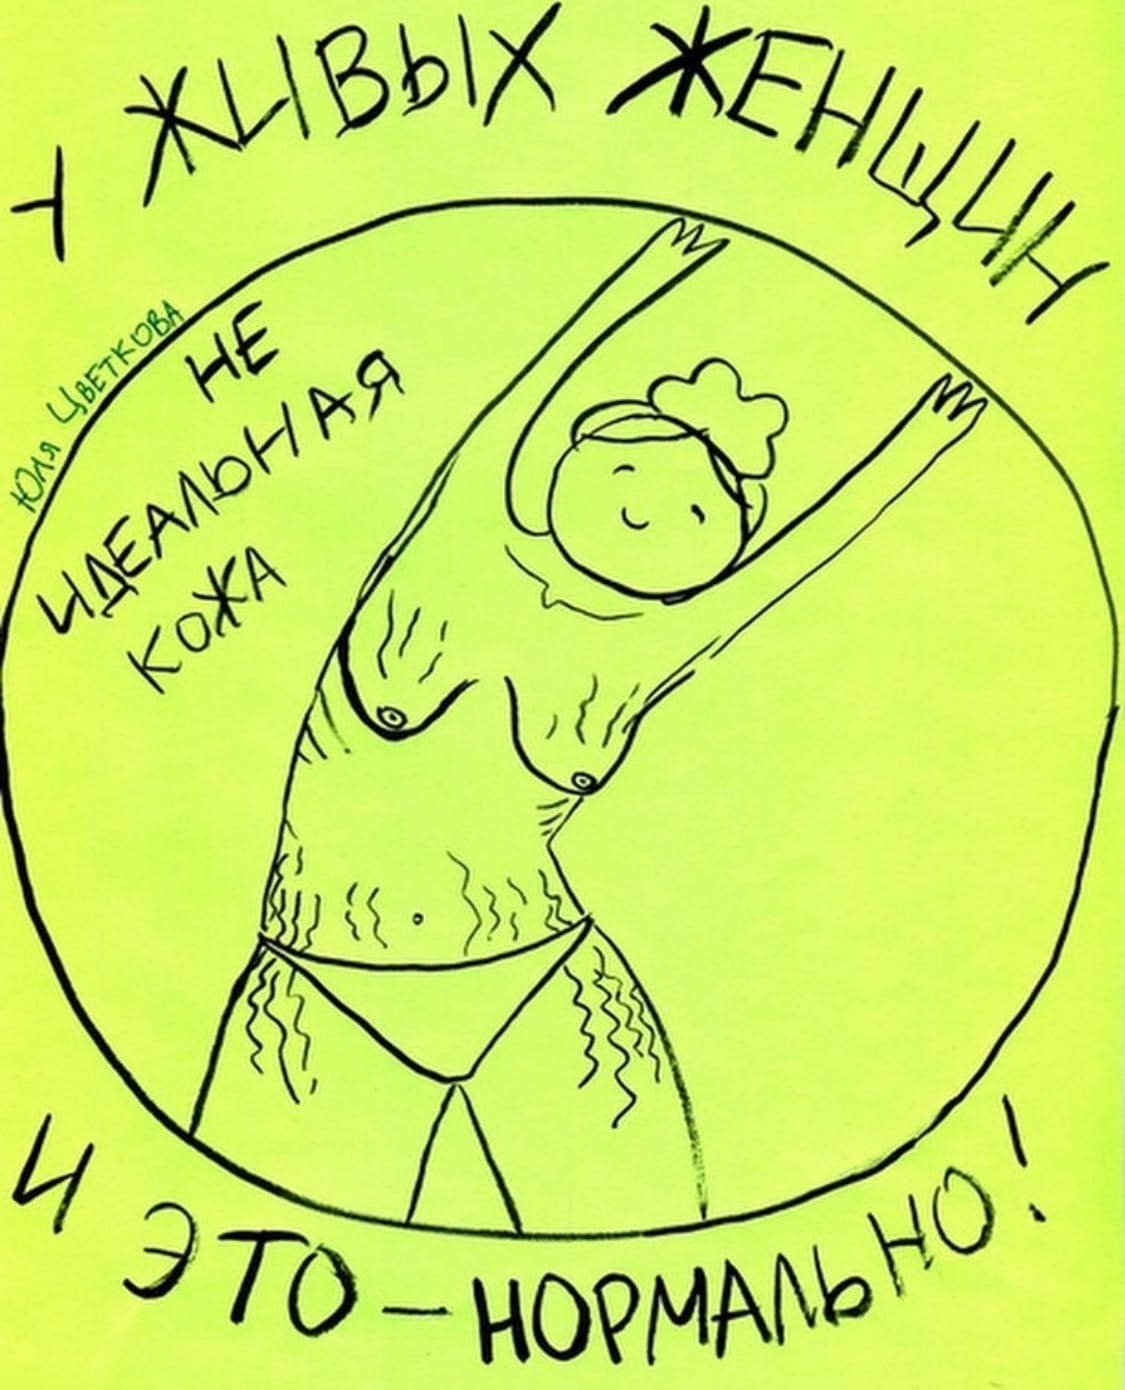 У ЖИВЫХ ЖЕНЩИН
ЮЛЯ ЦВЕТКОВА
НЕ
ИДЕАЛЬНАЯ
КОЖА
И ЭТО – НОРМАЛЬНО!